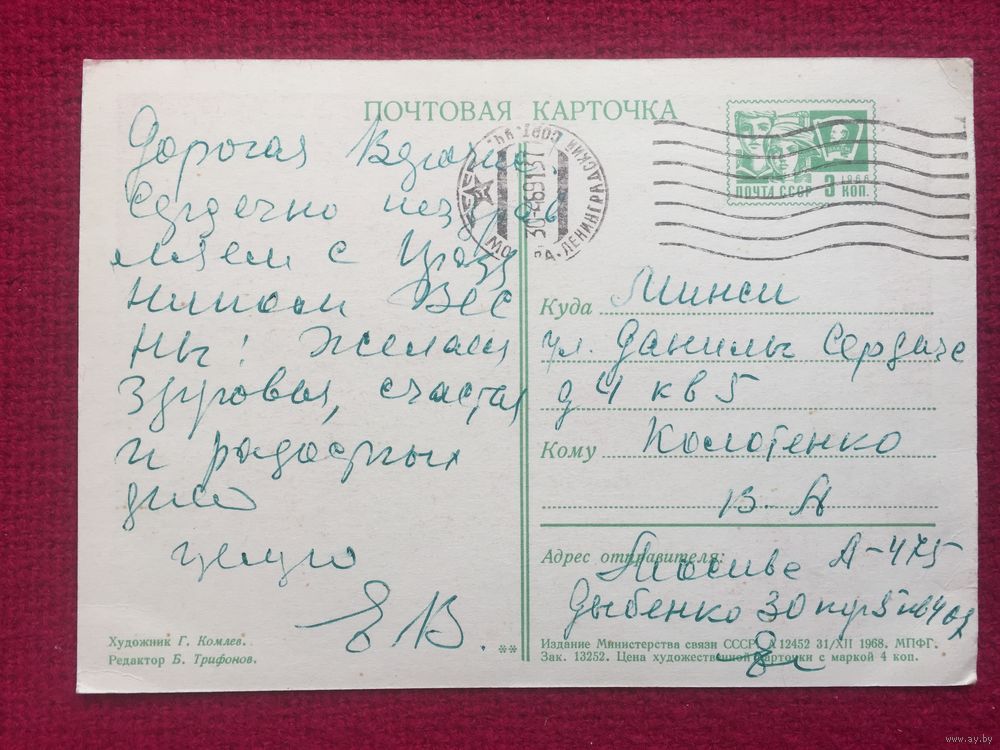 ПОЧТОВАЯ КАРТОЧКА
ПОЧТА СССР 3 КОП.
1966
ЛЕНИНГРАДСКИЙ
Дорогая
Сердечно поздрав
ляем с празд
ником Вес
ны! Желаем
здоровья, счастья
и радостных
дней
целую
ЕВ.
Куда Минск
ул. Данилы Сердиче
д 4 кв 5
Кому Колотенко
В. А
Адрес отправителя:
Москва А-475
Дыбенко 30
Художник Г. Комлев.
Редактор Б. Трифонов.
**
Издание Министерства связи СССР. А 12452 31/XII 1968. МПФГ.
Зак. 13252. Цена художественной карточки с маркой 4 коп.
www.ay.by